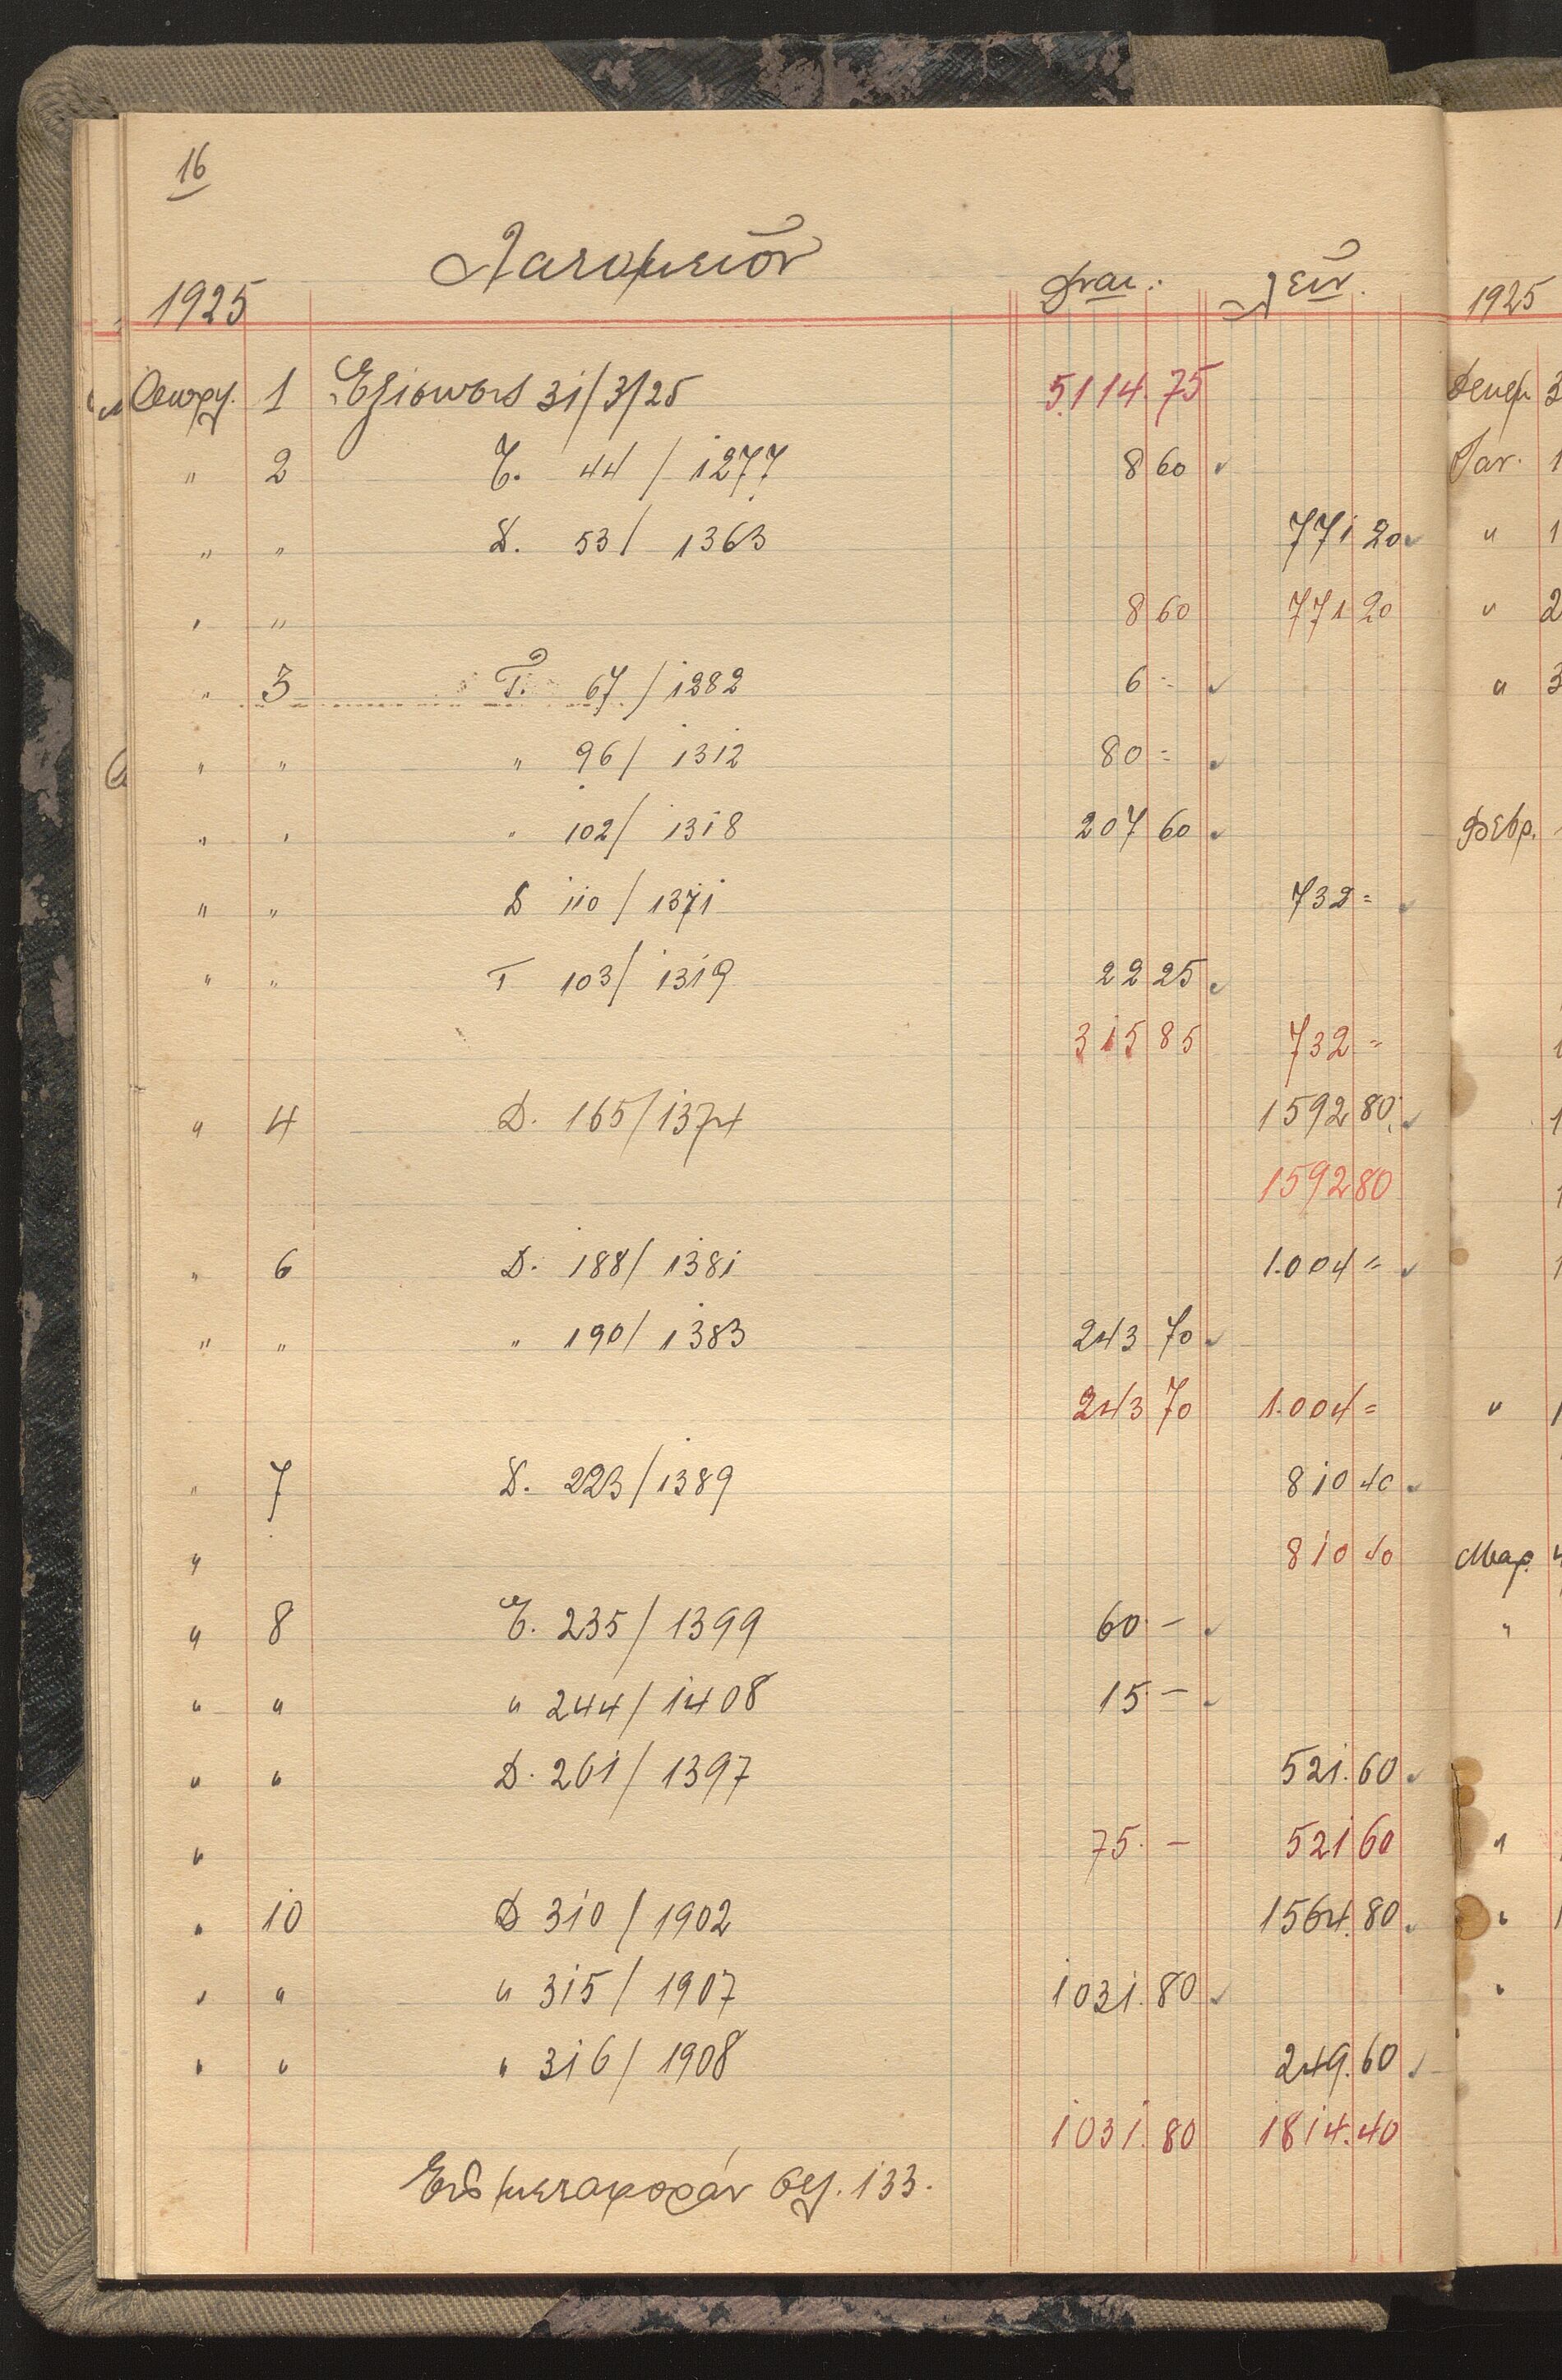 16
Λατομεῖον
1925 Δναι. Λειν.
1 Εξισωσις 31/3/25 5.114.75
" 2 Τ. 44 / 1277 8 60
" " Δ. 53 / 1363 771 20
" " 8 60 771 20
" 3 Τ. 67 / 1282 6 =
" " " 96 / 1312 80 =
" " " 102 / 1318 207 60
" " Δ 110 / 1371 732 =
" " Τ 103 / 1319 22 25
315 85 732 =
" 4 Δ. 165 / 1374 1592 80
1592 80
" 6 Δ. 188 / 1381 1.004 =
" " " 190 / 1383 243 70
243 70 1.004 =
" 7 Δ. 223 / 1389 810 40
" 810 40
" 8 Τ. 235 / 1399 60. –
" " " 244 / 1408 15 –
" " Δ. 261 / 1397 521.60
" 75. – 521 60
" 10 Δ 310 / 1902 1564.80
" " " 315 / 1907 1031.80
" " " 316 / 1908 249.60
1031.80 1814.40
Εις μεταφοράν σελ. 133.
1925
Δεκεμ 3
Ιαν. 1
" 1
" 2
" 3
Φεβρ.
" 1
Μαρ. 4
"
"
" 1
"